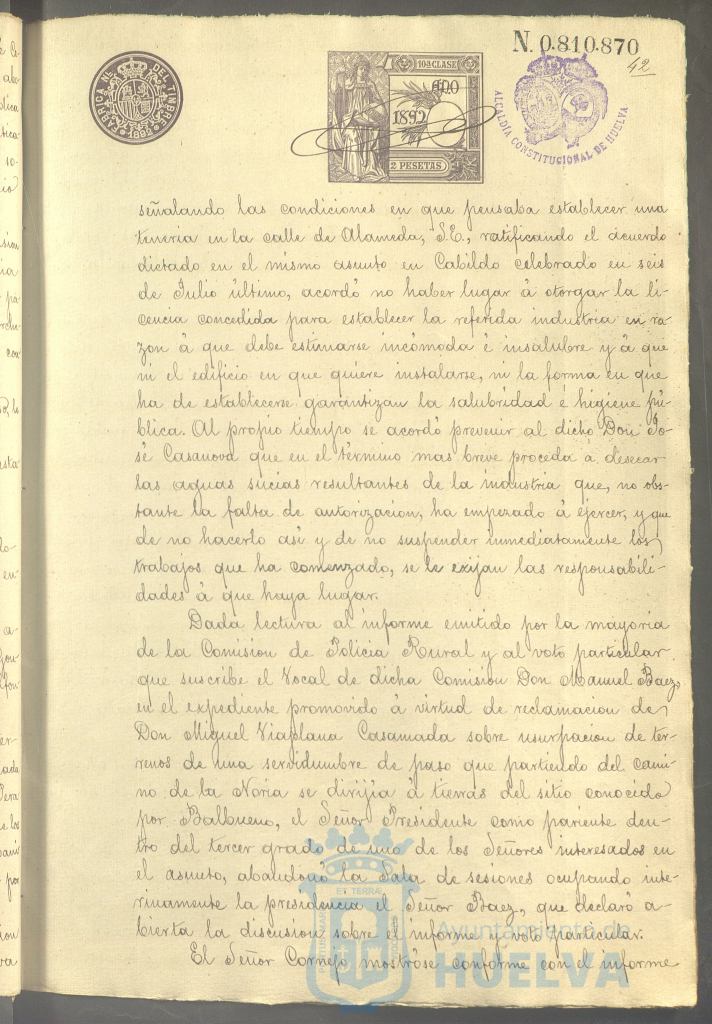 N. 0.810.870
42
FABRICA NL. DEL TIMBRE
1892
10ª CLASE
1892
2 PESETAS
ALCALDIA CONSTITUCIONAL DE HUELVA
señalando las condiciones en que pensaba establecer una
teneria en la calle de Alameda, S.E., ratificando el acuerdo
dictado en el mismo asunto en Cabildo celebrado en seis
de Julio último, acordó no haber lugar á otorgar la li-
cencia concedida para establecer la referida industria en ra-
zon á que debe estimarse incómoda é insalubre y á que
ni el edificio en que quiere instalarse, ni la forma en que
ha de establecerse garantizan la salubridad é higiene pú-
blica. Al propio tiempo se acordó prevenir al dicho Don Jo-
sé Casanova que en el término mas breve proceda á desecar
las aguas sucias resultantes de la industria que, no obs-
tante la falta de autorizacion, ha empezado á ejercer, y que
de no hacerlo asi y de no suspender inmediatamente los
trabajos que ha comenzado, se le exijan las responsabili-
dades á que haya lugar.
Dada lectura al informe emitido por la mayoria
de la Comision de Policia Rural y al voto particular
que suscribe el Vocal de dicha Comision Don Manuel Baez,
en el expediente promovido á virtud de reclamacion de
Don Miguel Viaplana Casamada sobre usurpacion de ter-
renos de una servidumbre de paso que partiendo del cami-
no de la Noria se dirijia á tierras del sitio conocido
por Balbueno, el Señor Presidente como pariente den-
tro del tercer grado de uno de los Señores interesados en
el asunto, abandonó la Sala de sesiones ocupando inte-
rinamente la presidencia el Señor Baez, que declaró a-
bierta la discusion sobre el informe y voto particular.
El Señor Cornejo mostróse conforme con el informe
ET TERRÆ
Ayuntamiento de
HUELVA